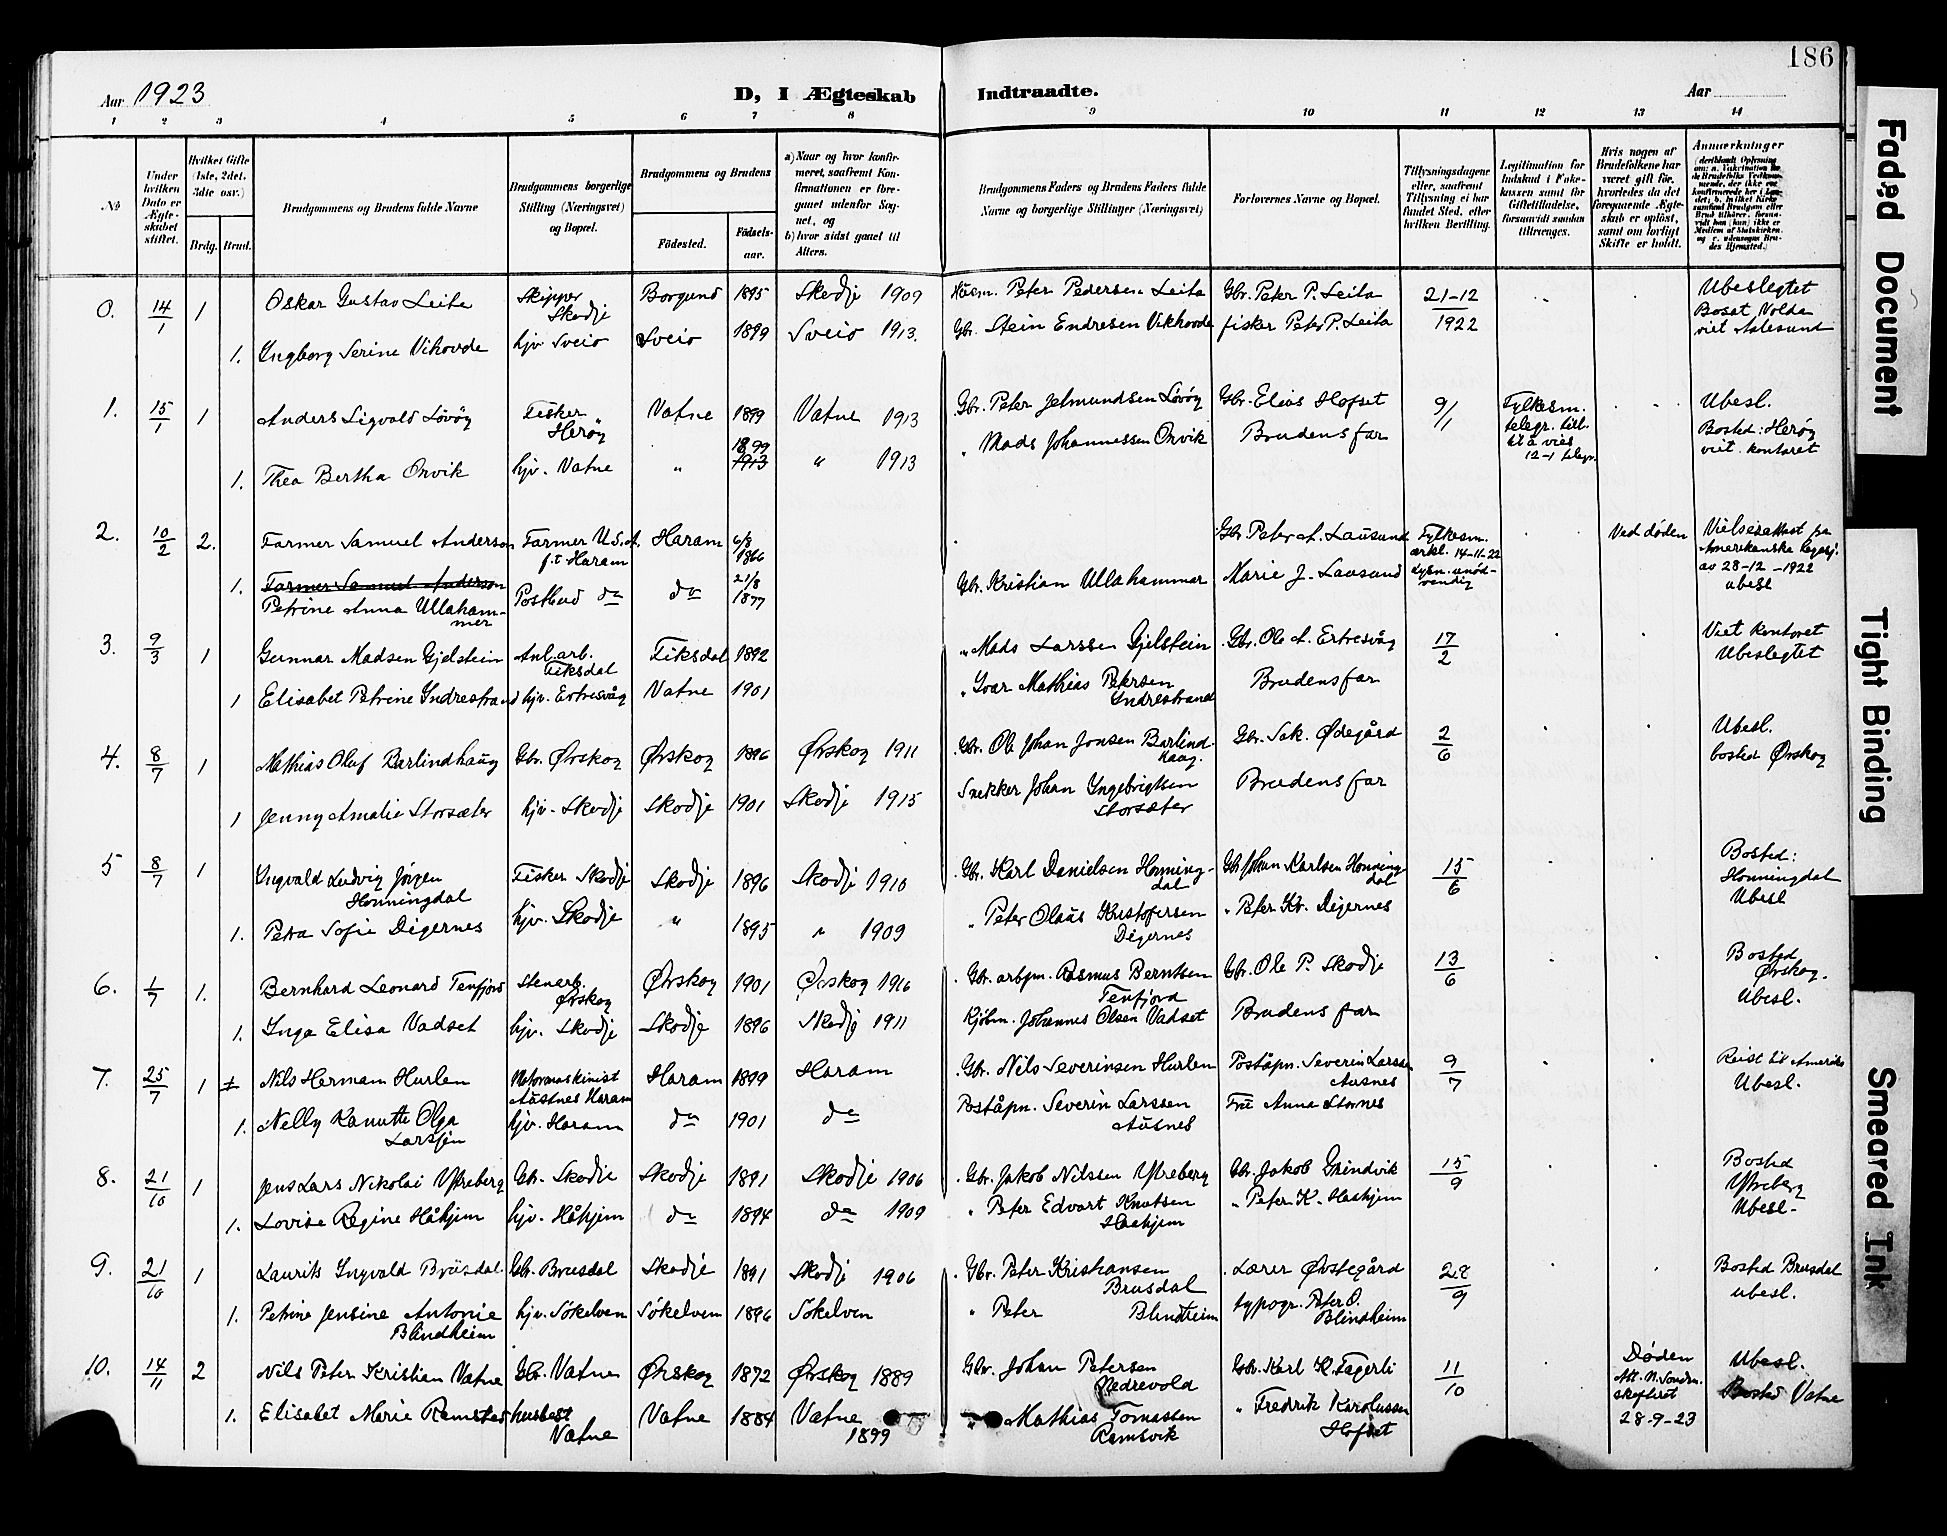 186
Aar 1923
D, I Ægteskab Indtraadte.
Aar
1 2 3 4 5 6 7 8 9 10 11 12 13 14
No
Under hvilken Dato er Ægteskabet stiftet.
Hvilket Gifte (1ste, 2det, 3die osv.)
Brdg. Brud.
Brudgommens og Brudens fulde Navne
Brudgommens borgerlige Stilling (Næringsvei) og Bopæl.
Brudgommens og Brudens
Fødested. Fødselsaar.
a) Naar og hvor konfirmeret, saafremt Konfirmationen er foregaaet udenfor Sognet, og
b) hvor sidst gaaet til Alters.
Brudgommens Faders og Brudens Faders fulde Navne og borgerlige Stillinger (Næringsvei)
Forlovernes Navne og Bopæl.
Tillysningsdagene eller, saafremt Tillysning ei har fundet Sted, efter hvilken Bevilling.
Legitimation for Indskud i Enkekassen samt for Giftetilladelse, forsaavidt saadan tiltrænges.
Hvis nogen af Brudefolkene har været gift før, hvorledes da det foregaaende Ægteskab er opløst, samt om lovligt Skifte er holdt.
Anmærkninger
0. 14/1 1 Oskar Gustav Leite Skipper Skodje Borgund 1895 Skodje 1909 Husm. Peter Pedersen Leite Gbr. Peter P. Leite 21-12 1922 Ubeslegtet
Bosat Volda
viet Aalesund
1. Yngborg Serine Vikovde hjv Sveio Sveio 1899 Sveio 1913. Gbr. Stein Endresen Vikhovde fisker Peter P. Leite
1. 15/1 1 Anders Sigvald Løvøy Fisker Herøy Vatne 1899 Vatne 1913 Gbr. Peter Jetmundsen Løvøy Gbr. Elias Hofset 9/1 Fylkesm. telegr. till. til å vies 12-1 telegr. Ubesl.
Bosted: Herøy
viet kontoret
1. Thea Bertha Orvik hjv. Vatne " 1899 1913 " 1913 " Mads Johannessen Orvik Brudens far
2. 10/2 2. Farmer Samuel Anderson Farmer U.S.A. f.t Haram Haram 6/8 1866 Gbr Peter A. Lausund Fylkesm. erkl. 14-11-22 Lysn. unødvendig Ved døden Vielsesattest fra
Amerikanske legasj.
av 28-12-1922
ubesl
1. Farmer Samuel Anderson
Petrine Anna Ullahammer Postbud do do 21/8 1877 Gbr Kristian Ullahammer Marie J. Lausund
3. 9/3 1 Gunnar Madsen Gjelstein Anl.arb. Fiksdal Fiksdal 1892 " Mads Larssen Gjelstein Gbr. Ole A. Ertresvåg 17/2 Viet kontoret
Ubeslegtet
1 Elisabet Petrine Yndrestrand hjv. Ertresvåg Vatne 1901 " Ivar Mathias Petersen Yndrestrand Brudens far
4. 8/7 1 Mathias Oluf Barlindhaug Gbr. Ørskog Ørskog 1896 Ørskog 1911 Gbr. Ole Johan Jonsen Barlindhaug. Gbr. Sak. Ødegård 2/6 Ubesl.
bosted Ørskog
1 Jenny Amalie Storsæter hjv. Skodje Skodje 1901 Skodje 1915 Snekker Johan Yngebrigtsen Storsæter Brudens far
5 8/7 1 Yngvald Ludvig Jørgen Honningdal Fisker Skodje Skodje 1896 Skodje 1910 Gbr. Karl Danielsen Honningdal Gbr Johan Karlsen Honningdal 15/6 Bosted:
Honningdal
Ubesl
1. Petra Sofie Digernes hjv. Skodje " 1895 " 1909 " Peter Olaus Kristofersen Digernes " Peter Kr. Digernes
6. 1/7 1. Bernhard Leonard Tenfjord Stenarb. Ørskog Ørskog 1901 Ørskog 1916 Gbr. arbfm. Rasmus Berntsen Tenfjord Gbr. Ole P. Skodje 13/6 Bosted
Ørskog.
Ubesl.
1. Inga Elisa Vadset hjv. Skodje Skodje 1896 Skodje 1911 Kjøbm. Johannes Olsen Vadset Brudens far
7. 25/7 1 Nils Herman Hurlen Motormaskinist Austnes Haram Haram 1899 Haram Gbr. Nils Severinsen Hurlen Poståpn. Severin Larssen Ausnes 9/7 Reist til Amerika
Ubesl.
1. Nelly Kanutte Olga Larssen hjv. Haram do 1901 do Poståpn. Severin Larssen Ausnes Fru Anna Stornes
8. 21/10 1 Jens Lars Nikolai Ytreberg Gbr. Skodje Skodje 1891 Skodje 1906 Gbr. Jakob Nilssen Ytreberg Gbr. Jakob Grindvik 15/9 Bosted
Ytreberg
Ubesl.
1. Lovise Regine Håhjem hjv. Håhjem do 1894 do 1909 " Peter Edvart Knutsen Haahjem " Peter K. Haahjem
9. 21/10 1 Laurits Ingvald Brusdal Gbr. Brusdal Skodje 1891 Skodje 1906 Gbr. Peter Kristiansen Brusdal Lærer Ørstegård 28/9 Bosted Brusdal
ubesl.
1. Petrine Jensine Antonie Blindheim hjv. Søkelven Søkelven 1896 Søkelven " Peter Blindheim typogr. Peter O. Blindheim
10. 14/11 2 Nils Peter Kristian Vatne Gbr. Vatne Ørskog 1872 Ørskog 1889 Gbr. Johan Petersen Nedrevold Gbr. Karl K. Fagerli 11/10 Døden
28-9-23 Ubesl.
Bosted Vatne
1. Elisabet Marie Ramstad husbest Vatne Vatne 1884 Vatne 1899 " Mathias Tomassen Ramsvik " Fredrik Karolussen Hofset
Faded Document
Tight Binding
Smeared Ink